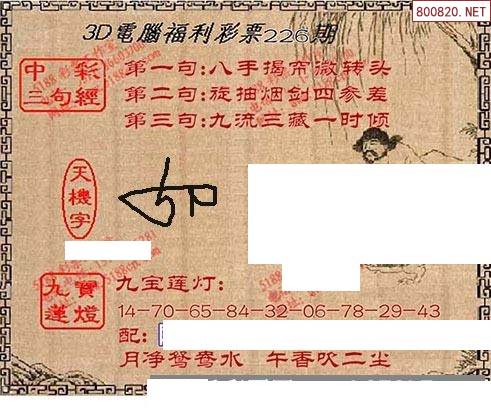 800820.NET
3D電腦福利彩票226期
中彩三句經
第一句:八手揭帘微转头
第二句:旋抽烟剑四参差
第三句:九流三藏一时倾
天機字
九寶蓮燈
九宝莲灯:
14-70-65-84-32-06-78-29-43
配:
月净鸳鸯水 午香吹二尘